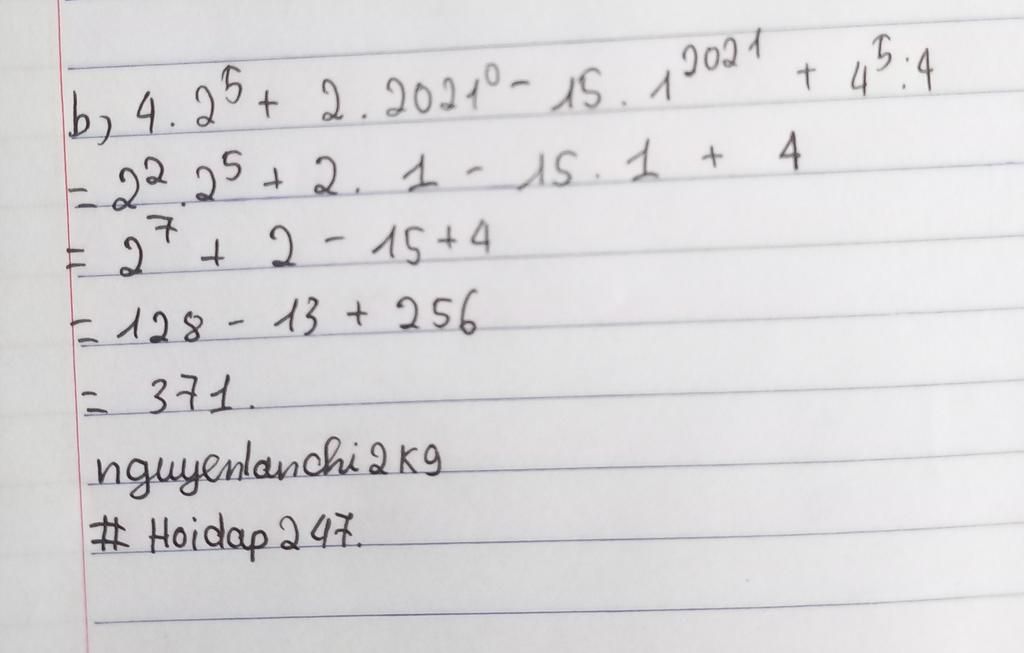 b, 4 . 2⁵ + 2 . 2021⁰ - 15 . 1²⁰²¹ + 4⁵ : 4
= 2² . 2⁵ + 2 . 1 - 15 . 1 + 4
= 2⁷ + 2 - 15 + 4
= 128 - 13 + 256
= 371.
nguyenlanchi2k9
# Hoidap 247.